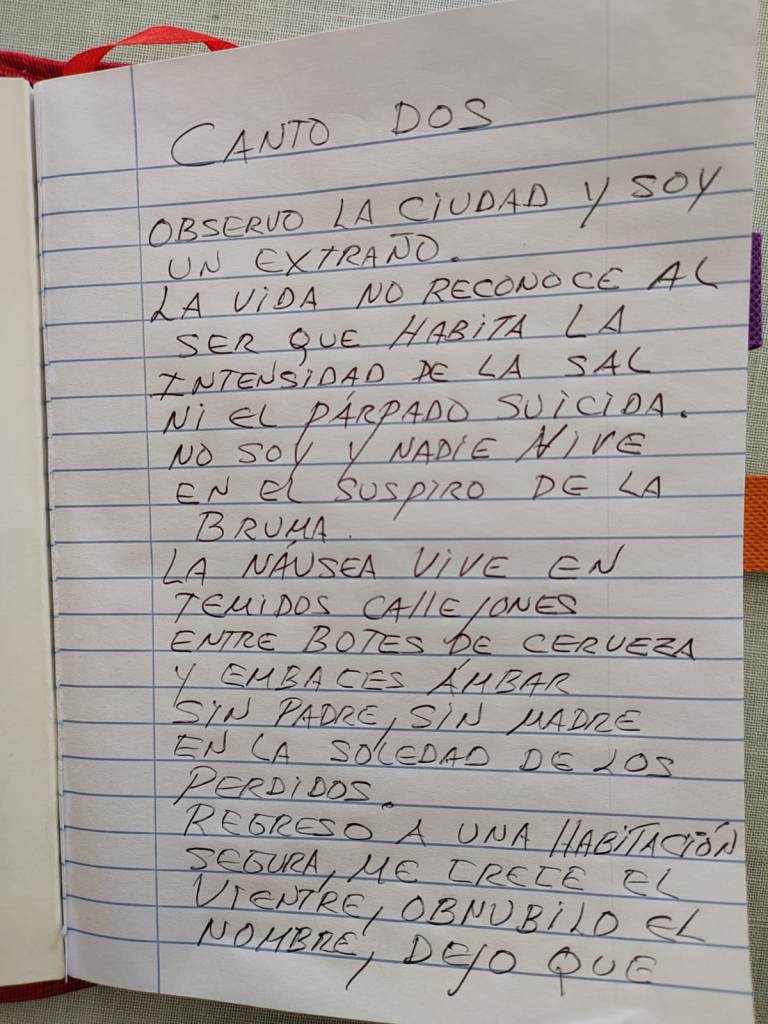 CANTO DOS
OBSERVO LA CIUDAD Y SOY
UN EXTRAÑO.
LA VIDA NO RECONOCE AL
SER QUE HABITA LA
INTENSIDAD DE LA SAL
NI EL PÁRPADO SUICIDA.
NO SOY Y NADIE VIVE
EN EL SUSPIRO DE LA
BRUMA.
LA NÁUSEA VIVE EN
TEMIDOS CALLEJONES
ENTRE BOTES DE CERVEZA
Y EMBACES ÁMBAR
SIN PADRE, SIN MADRE
EN LA SOLEDAD DE LOS
PERDIDOS.
REGRESO A UNA HABITACIÓN
SEGURA, ME CRECE EL
VIENTRE, OBNUBILO EL
NOMBRE, DEJO QUE